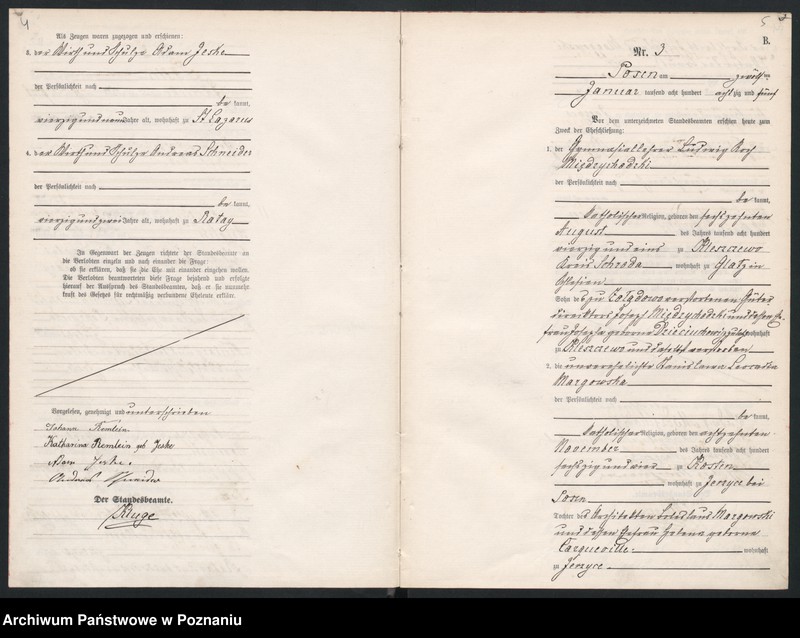 4
Als Zeugen waren zugezogen und erschienen:
3. der Wirth und Schulze Adam Jeske
der Persönlichkeit nach
be kannt,
vierzig und neun Jahre alt, wohnhaft zu St Lazarus
4. der Wirth und Schulze Andreas Schneider
der Persönlichkeit nach
be kannt,
vierzig und zwei Jahre alt, wohnhaft zu Ratay
In Gegenwart der Zeugen richtete der Standesbeamte an
die Verlobten einzeln und nach einander die Frage:
ob sie erklären, daß sie die Ehe mit einander eingehen wollen.
Die Verlobten beantworteten diese Frage bejahend und erfolgte
hierauf der Ausspruch des Standesbeamten, daß er sie nunmehr
kraft des Gesetzes für rechtmäßig verbundene Eheleute erkläre.
Vorgelesen, genehmigt und unterschrieben
Johann Remlein.
Katharina Remlein geb Jeske
Adam Jeske.
Andreas Schneider
Der Standesbeamte.
Kluge
5
B.
Nr. 3
Posen am zwölften
Januar tausend acht hundert achtzig und fünf
Vor dem unterzeichneten Standesbeamten erschien heute zum
Zweck der Eheschließung:
1. der Gymnasiallehrer Ludwig
Miedzychodzki
der Persönlichkeit nach
be kannt,
katholischer Religion, geboren den sechszehnten
August des Jahres tausend acht hundert
vierzig und eins zu Kleszczewo
Kreis Schroda wohnhaft zu Glatz in
Schlesien
Sohn des zu verstorbenen Güter
direktors Josef Międzychodzki und dessen Ehe
frau Josepha geborene wohnhaft
zu Kleszczewo und daselbst verstorben
2. die unverehelichte Stanislawa Leocadia
Margowska
der Persönlichkeit nach
be kannt,
katholischer Religion, geboren den achtzehnten
November des Jahres tausend acht hundert
sechszig und vier zu Kosten
wohnhaft zu Jerzyce bei
Posen
Tochter des Architekten Boleslaus Margowski
und dessen Ehefrau Helena geborene
wohnhaft
zu Jerzyce
Archiwum Państwowe w Poznaniu